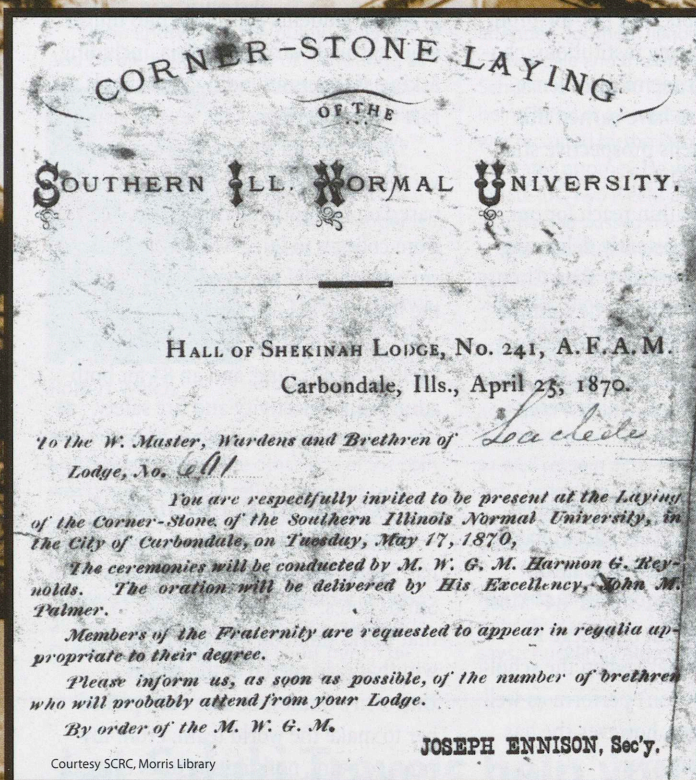 CORNER-STONE LAYING
OF THE
SOUTHERN ILL. NORMAL UNIVERSITY.
HALL OF SHEKINAH LODGE, No. 241, A.F.A.M.
Carbondale, Ills., April 25, 1870.
To the W. Master, Wardens and Brethren of
Lodge, No. 691
You are respectfully invited to be present at the Laying
of the Corner-Stone of the Southern Illinois Normal University, in
the City of Carbondale, on Tuesday, May 17, 1870,
The ceremonies will be conducted by M. W. G. M. Harmon G. Rey-
nolds. The oration will be delivered by His Excellency, John M.
Palmer.
Members of the Fraternity are requested to appear in regalia ap-
propriate to their degree.
Please inform us, as soon as possible, of the number of brethren
who will probably attend from your Lodge.
By order of the M. W. G. M.
JOSEPH ENNISON, Sec'y.
Courtesy SCRC, Morris Library